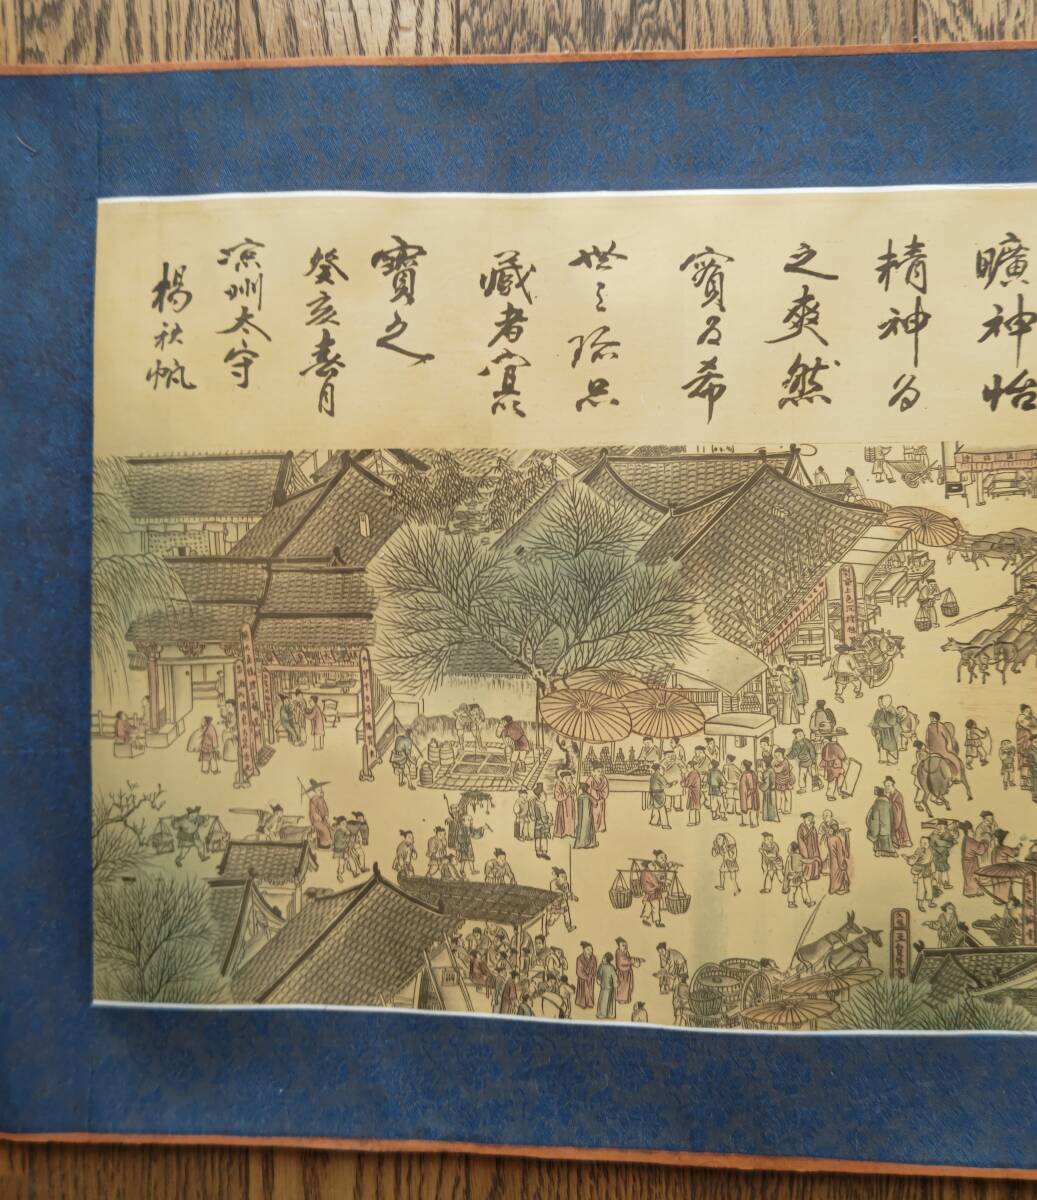 曠神怡
精神為
之爽然
實為希
世之珍品
藏者宜
寶之
癸亥春月
涼州太守
楊秋帆